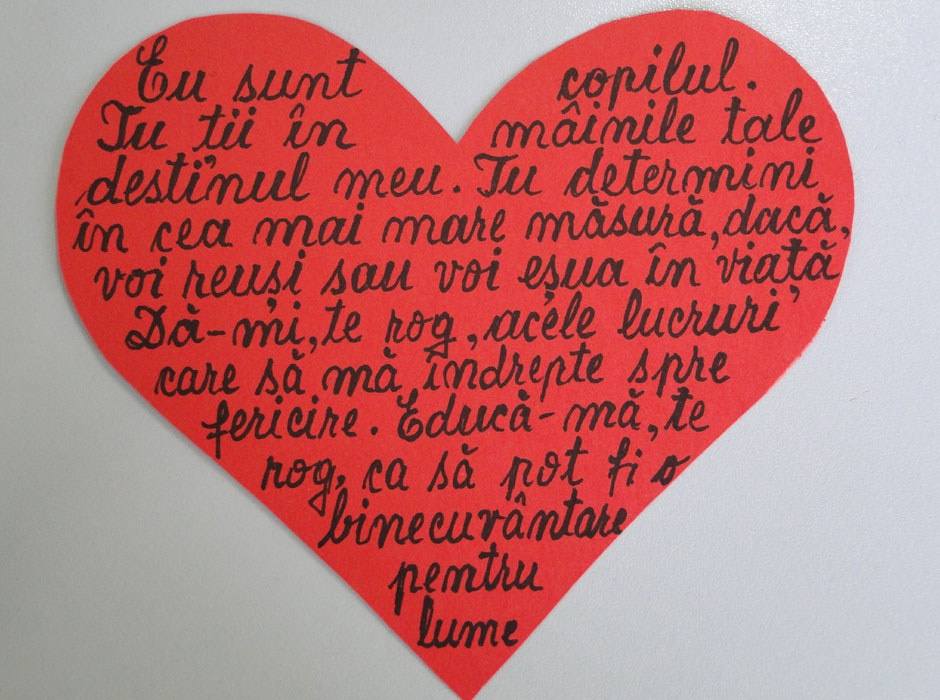 Eu sunt copilul.
Tu ții în mâinile tale
destinul meu. Tu determini
în cea mai mare măsură, dacă,
voi reuși sau voi eșua în viață
Dă-mi, te rog, acele lucruri
care să mă îndrepte spre
fericire. Educă-mă, te
rog, ca să pot fi o
binecuvântare
pentru
lume